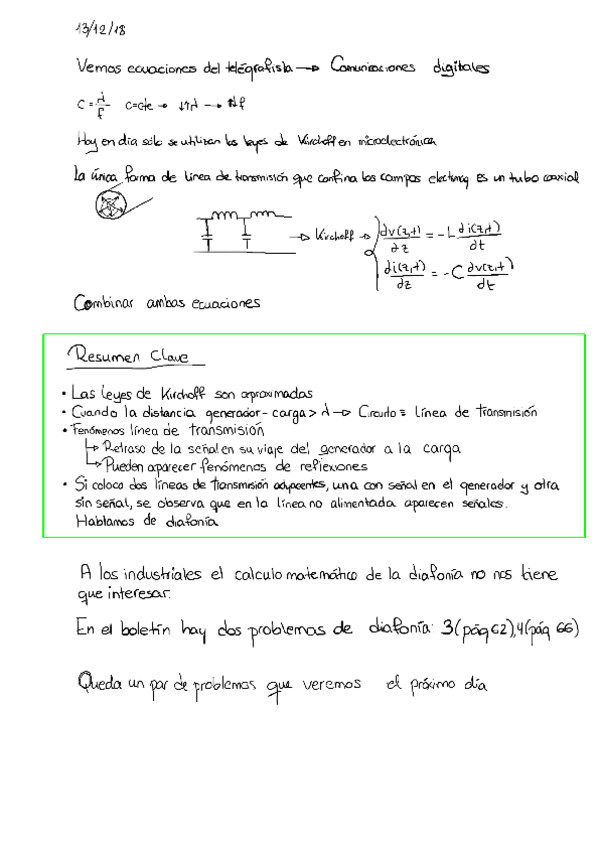 13/12/18
Vemos ecuaciones del telégrafista → Comunicaciones digitales
C = λ/f C=cte → ↓↑λ → ↑↓f
Hoy en día sólo se utilizan las leyes de Kirchoff en microelectrónica
La única forma de línea de transmisión que confina los campos electmg es un tubo coaxial
→ Kirchoff → dv(z,t)/dz = -L di(z,t)/dt
di(z,t)/dz = -C dv(z,t)/dt
Combinar ambas ecuaciones
Resumen Clave
• Las leyes de Kirchoff son aproximadas
• Cuando la distancia generador-carga > λ → Circuito ≡ línea de transmisión
• Fenómenos línea de transmisión
↳ Retraso de la señal en su viaje del generador a la carga
↳ Pueden aparecer fenómenos de reflexiones
• Si coloco dos líneas de transmisión adyacentes, una con señal en el generador y otra
sin señal, se observa que en la línea no alimentada aparecen señales.
Hablamos de diafonía
A los industriales el calculo matemático de la diafonía no nos tiene
que interesar.
En el boletín hay dos problemas de diafonía: 3(pág 62), 4(pág 66)
Queda un par de problemas que veremos el próximo día